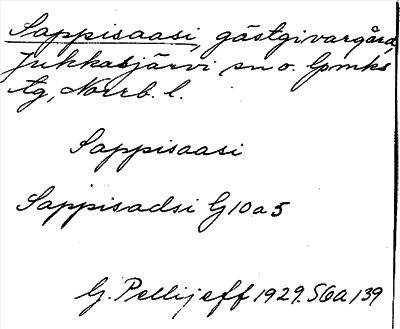 Sappisaasi, gästgivargård,
Jukkasjärvi sn o. Gpmks
tg, Norrb. l.
Sappisaasi
Sappisadsi G10a5
G. Pellijeff 1929. S6a, 139